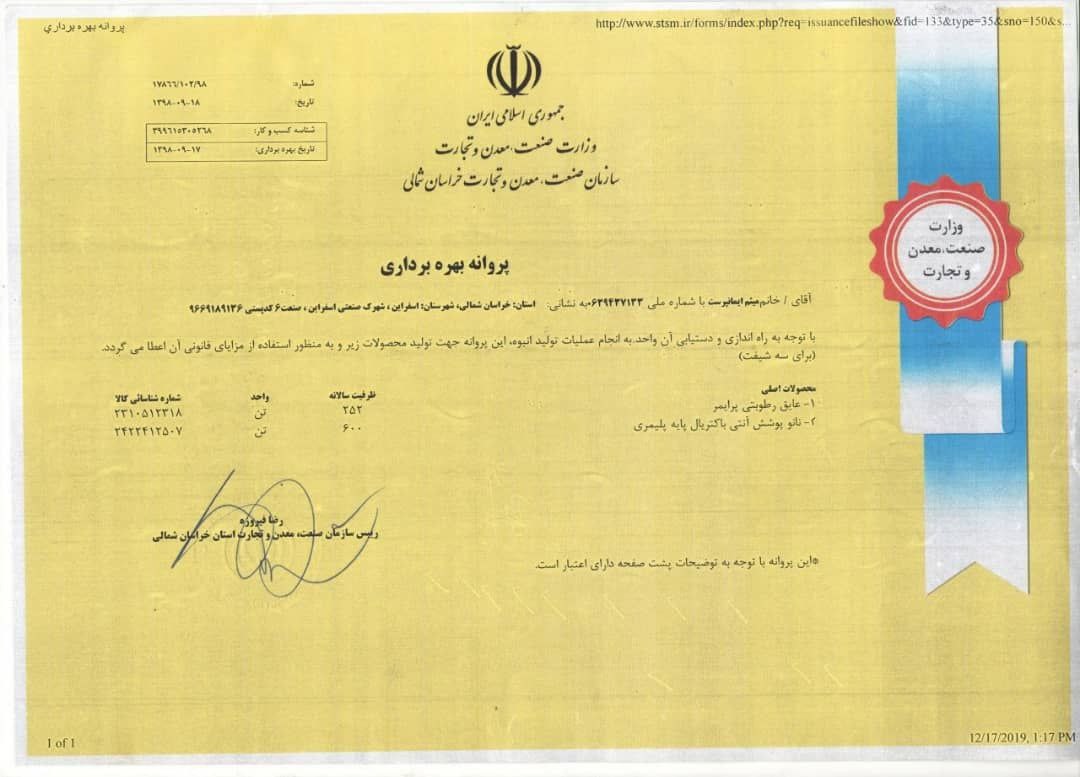 پروانه بهره برداري
http://www.stsm.ir/forms/index.php?req=issuancefileshow&fid=133&type=35&sno=150&s...
شماره: ۱۷۸۶۶/۱۰۲/۹۸
تاریخ: ۱۳۹۸-۰۹-۱۸
شناسه کسب و کار: ۳۹۹۶۱۵۳۰۵۲۶۸
تاریخ بهره برداری: ۱۳۹۸-۰۹-۱۷
جمهوری اسلامی ایران
وزارت صنعت، معدن و تجارت
سازمان صنعت، معدن و تجارت خراسان شمالی
وزارت
صنعت، معدن
و تجارت
پروانه بهره برداری
آقای / خانم میثم ایمانپرست با شماره ملی ۰۶۲۹۴۳۷۱۳۳ به نشانی: استان: خراسان شمالی، شهرستان: اسفراین، شهرک صنعتی اسفراین، صنعت۶ کدپستی ۹۶۶۹۱۸۹۱۳۶
با توجه به راه اندازی و دستیابی آن واحد به انجام عملیات تولید انبوه، این پروانه جهت تولید محصولات زیر و به منظور استفاده از مزایای قانونی آن اعطا می گردد.
(برای سه شیفت)
محصولات اصلی ظرفیت سالانه واحد شماره شناسائی کالا
۱- عایق رطوبتی پرایمر ۲۵۲ تن ۲۳۱۰۵۱۲۳۱۸
۲- نانو پوشش آنتی باکتریال پایه پلیمری ۶۰۰ تن ۲۴۲۲۴۱۲۵۰۷
رضا فیروزه
رییس سازمان صنعت، معدن و تجارت استان خراسان شمالی
*این پروانه با توجه به توضیحات پشت صفحه دارای اعتبار است.
1 of 1
12/17/2019, 1:17 PM